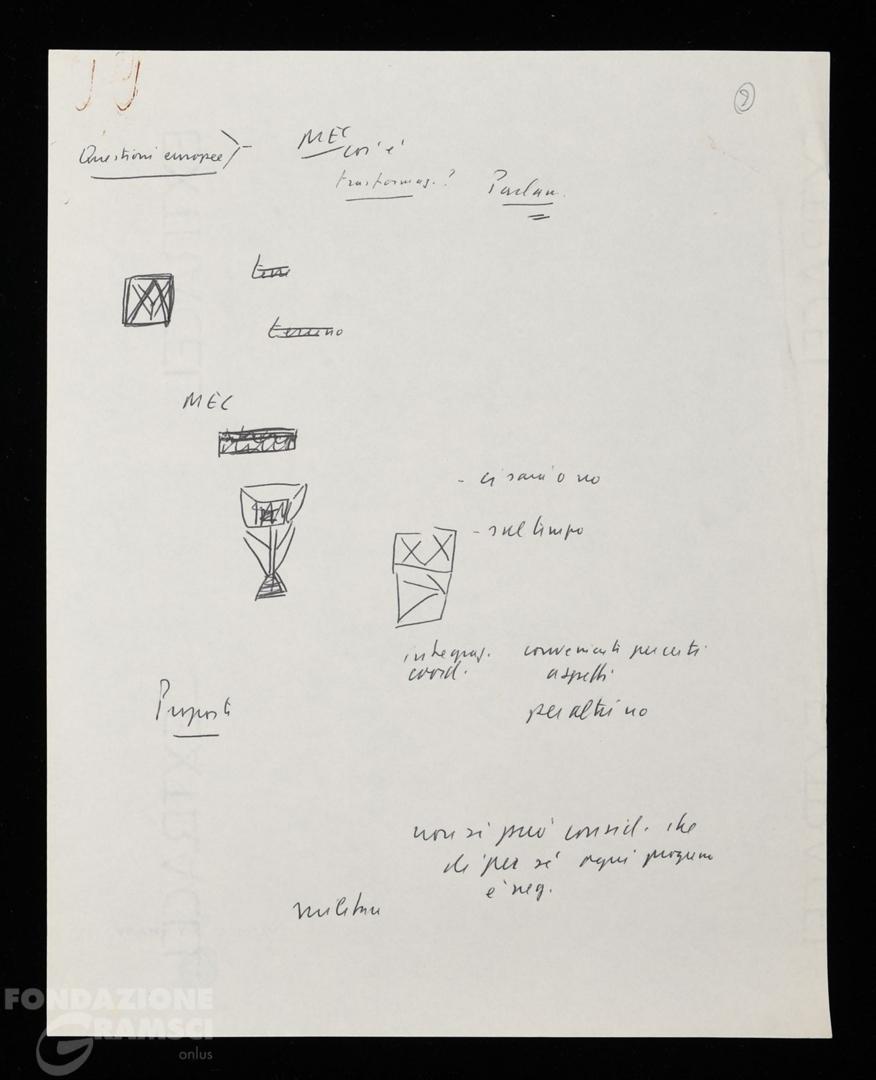 9
Questioni europee) - MEC
cos'è
trasformaz.? Parlam.
terr
terreno
MEC
- ci sarà o no
- sul tempo
integraz. convenienti per certi
coord. aspetti
Proposte per altri no
non si può consid. che
di per sé ogni
è neg.
militare
FONDAZIONE
GRAMSCI
onlus